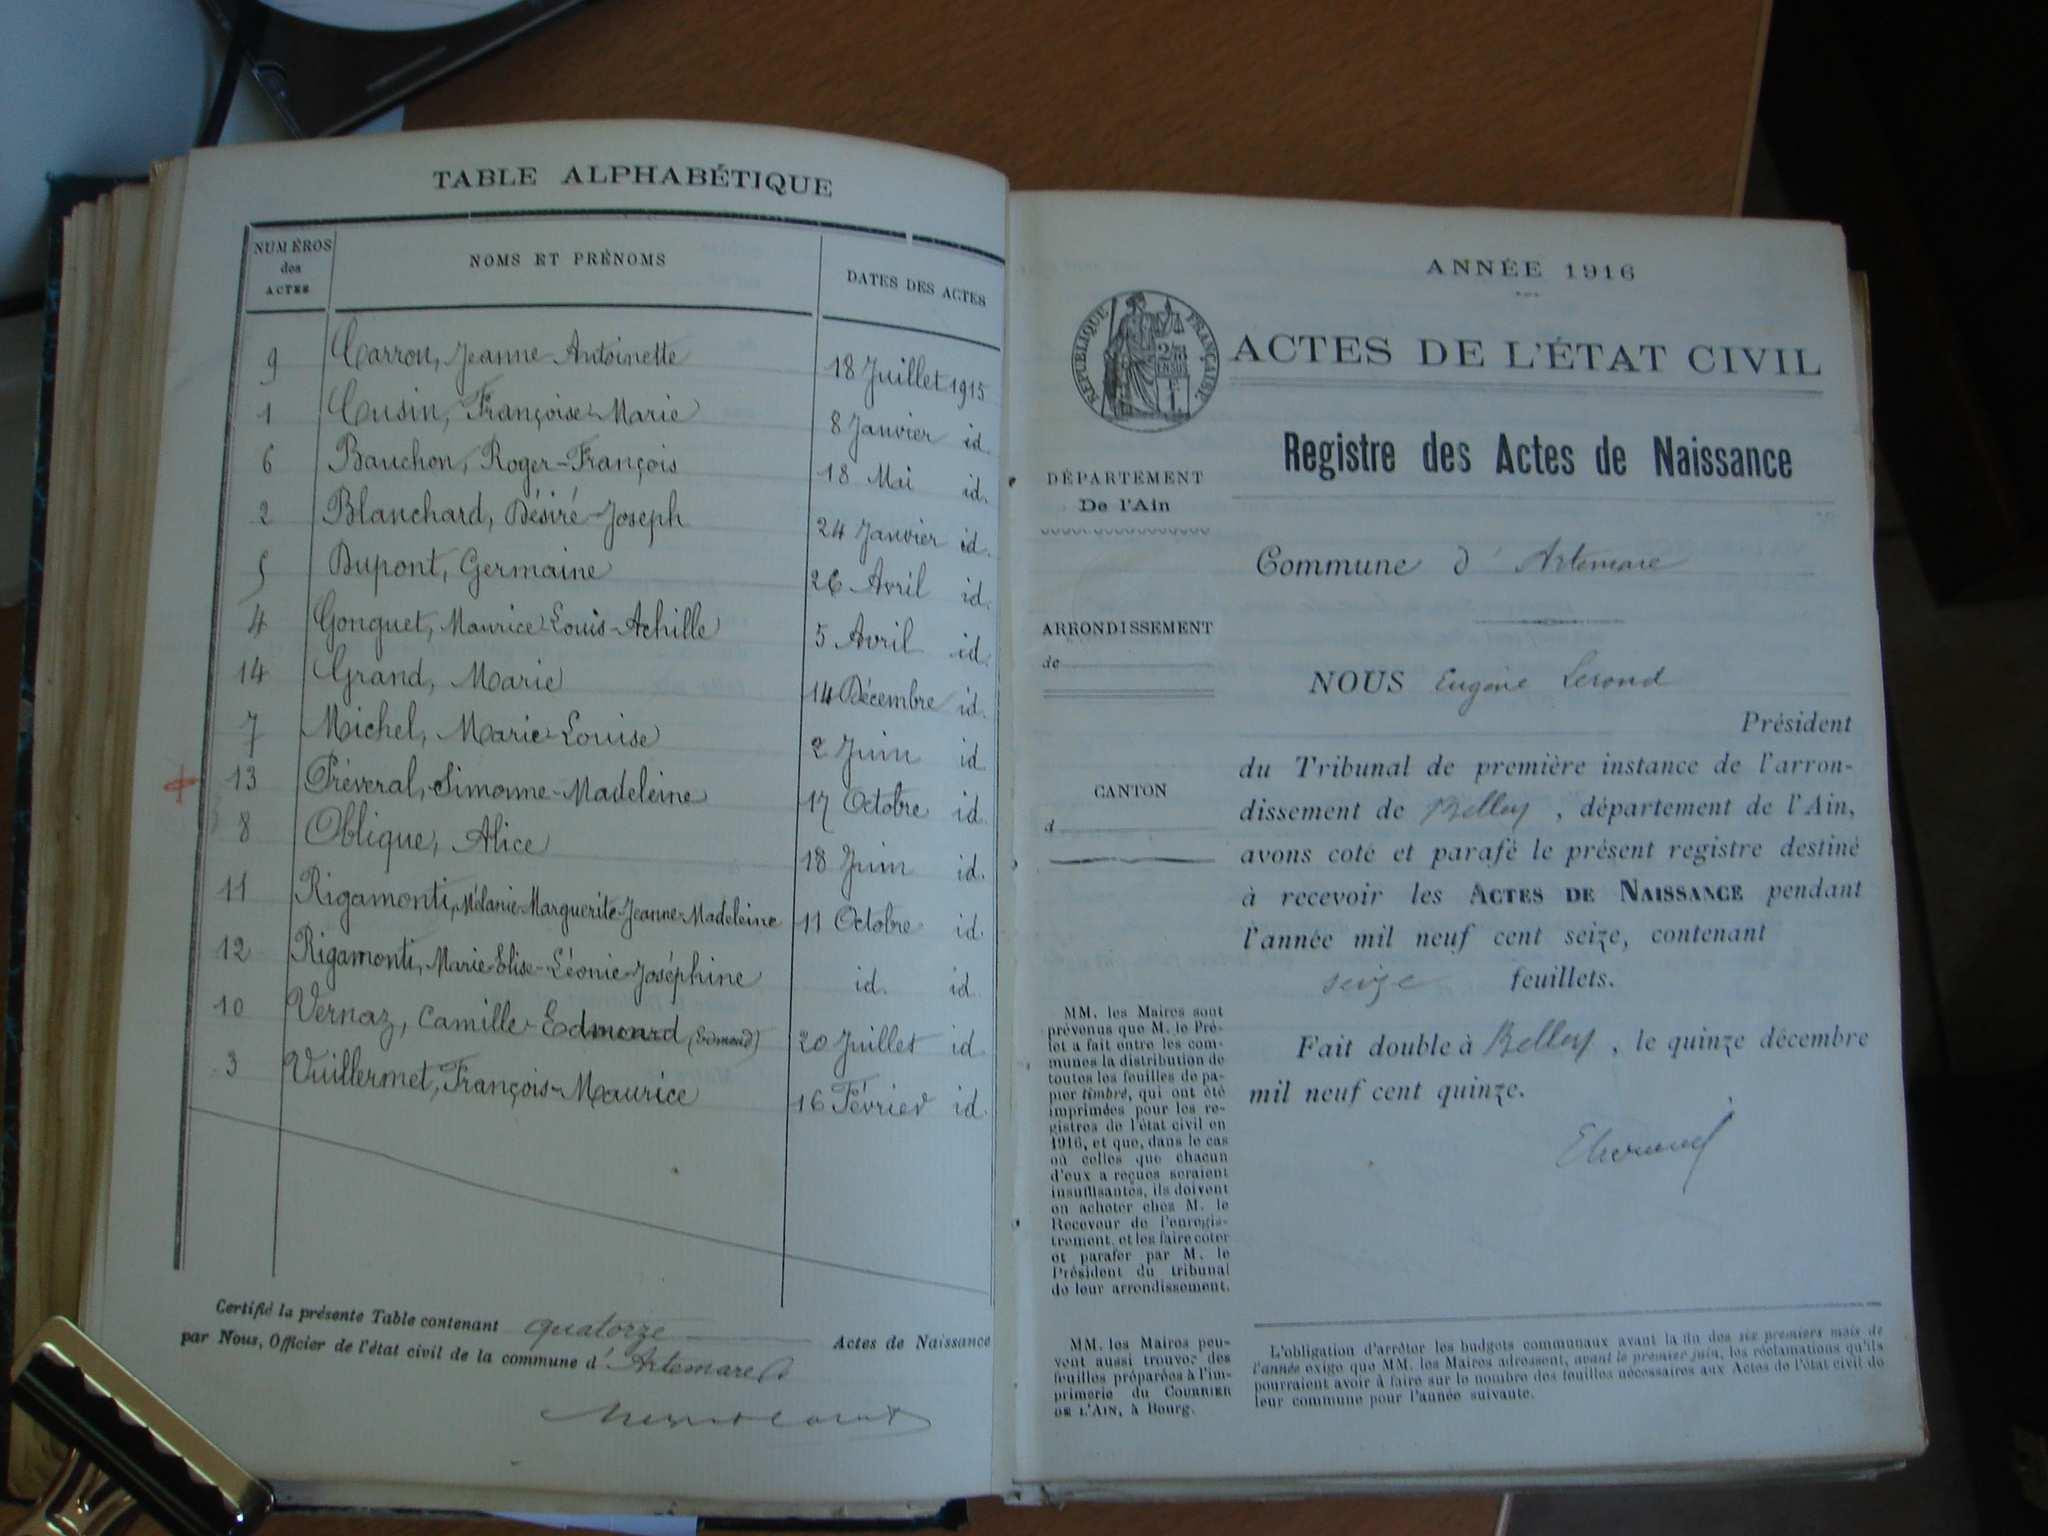 TABLE ALPHABÉTIQUE
NUMÉROS des ACTES NOMS ET PRÉNOMS DATES DES ACTES
9 Carron, Jeanne-Antoinette 18 Juillet 1915
1 Cusin, Françoise-Marie 8 Janvier id.
6 Bauchon, Roger-François 18 Mai id.
2 Blanchard, Désiré-Joseph 24 Janvier id.
5 Dupont, Germaine 26 Avril id.
4 Gonguet, Maurice-Louis-Achille 5 Avril id.
14 Grand, Marie 14 Décembre id.
7 Michel, Marie-Louise 2 Juin id
13 Préveral, Simonne-Madeleine 17 Octobre id.
8 Oblique, Alice 18 Juin id.
11 Rigamonti, Mélanie-Marguerite-Jeanne-Madeleine 11 Octobre id.
12 Rigamonti, Marie-Elise-Léonie-Joséphine id. id.
10 Vernaz, Camille-Edmond (Edmond) 20 Juillet id.
3 Vuillermet, François-Maurice 16 Février id.
Certifié la présente Table contenant quatorze Actes de Naissance
par Nous, Officier de l'état civil de la commune d' Artemare
ANNÉE 1916
RÉPUBLIQUE FRANÇAISE
2 EN SUS
ACTES DE L'ÉTAT CIVIL
Registre des Actes de Naissance
DÉPARTEMENT
De l'Ain
Commune d' Artemare
ARRONDISSEMENT
de
NOUS Eugène Lerond
Président
du Tribunal de première instance de l'arron-
dissement de Belley, département de l'Ain,
avons coté et parafé le présent registre destiné
à recevoir les ACTES DE NAISSANCE pendant
l'année mil neuf cent seize, contenant
seize feuillets.
CANTON
d
Fait double à Belley, le quinze décembre
mil neuf cent quinze.
MM. les Maires sont
prévenus que M. le Pré-
fet a fait entre les com-
munes la distribution de
toutes les feuilles de pa-
pier timbré, qui ont été
imprimées pour les re-
gistres de l'état civil en
1916, et que, dans le cas
où celles que chacun
d'eux a reçues seraient
insuffisantes, ils doivent
en acheter chez M. le
Receveur de l'enregis-
trement, et les faire coter
et parafer par M. le
Président du tribunal
de leur arrondissement.
MM. les Maires peu-
vent aussi trouver des
feuilles préparées à l'im-
primerie du COURRIER
DE L'AIN, à Bourg.
L'obligation d'arrêter les budgets communaux avant la fin des six premiers mois de
l'année exige que MM. les Maires adressent, avant le premier juin, les réclamations qu'ils
pourraient avoir à faire sur le nombre des feuilles nécessaires aux Actes de l'état civil de
leur commune pour l'année suivante.